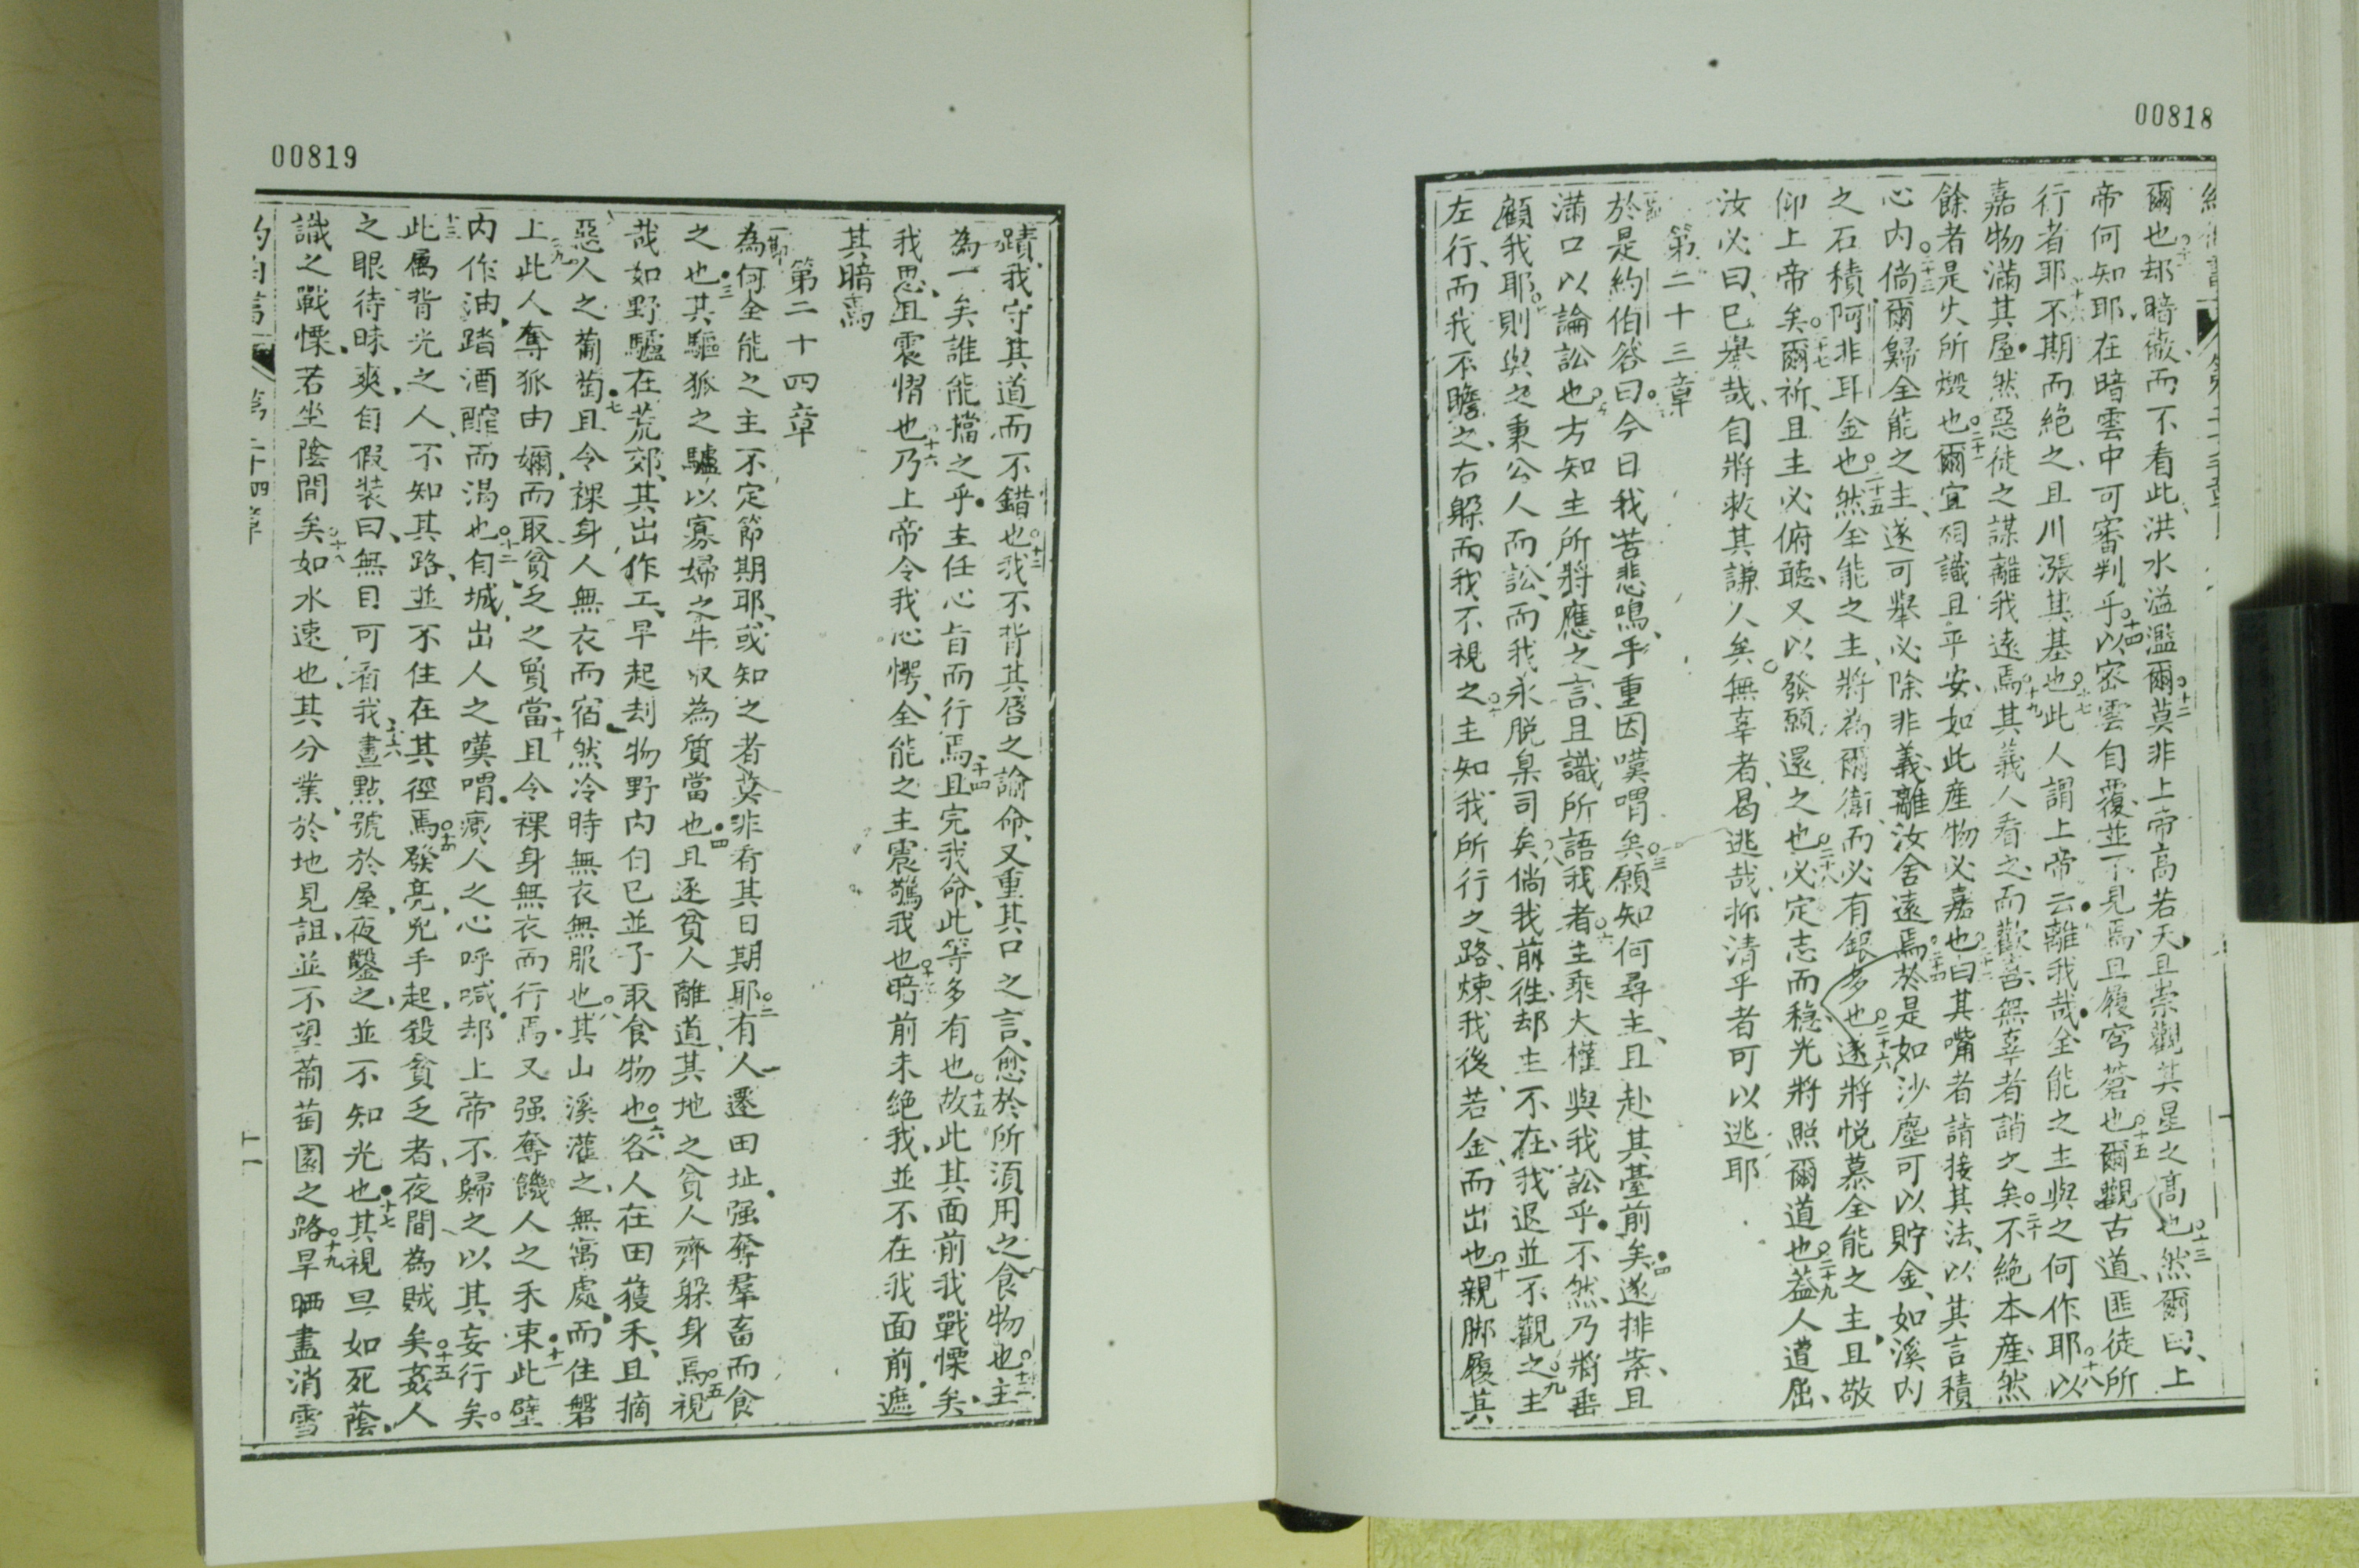 00818
爾也却暗蔽而不看此洪水溢濫爾○十二莫非上帝高若天且崇觀其星之高也○十三然爾曰上
帝何知耶在暗雲中可審判乎○十四以密雲自覆並不見焉且履穹蒼也○十五爾觀古道匪徒所
行者耶○十六不期而絕之且川漲其基也○十七此人謂上帝云離我哉全能之主與之何作耶○十八以
嘉物滿其屋然惡徒之謀離我遠焉○十九其義人看之而歡喜無辜者誚之矣○二十不絕本產然
餘者是火所燬也○二十一爾宜相識且平安如此產物必嘉也○二十二曰其嘴者請接其法以其言積
心內○二十三倘爾歸全能之主遂可舉必除非義離汝舍遠焉○二十四於是如沙塵可以貯金如溪內
之石積阿非耳金也○二十五然全能之主將為爾衛而必有銀多也○二十六遂將悅慕全能之主且敬
仰上帝矣○二十七爾祈且主必俯聽又以發願還之也○二十八必定志而穩光將照爾道也○二十九蓋人遭屈
汝必曰已舉哉自將救其謙人矣○無辜者曷逃哉抑清乎者可以逃耶
第二十三章
於是約伯答曰○二今日我苦悲鳴手重因嘆喟矣○三願知何尋主且赴其臺前矣四遂排案且
滿口以論訟也○五方知主所將應之言且識所語我者○六主乘大權與我訟乎不然乃將垂
顧我耶○七則與之秉公人而訟而我永脫臬司矣○八倘我前徃却主不在我退並不觀之○九主
左行而我不瞻之右躲而我不視之○十主知我所行之路煉我後若金而出也○十一親脚履其
00819
蹟我守其道而不錯也○十二我不背其唇之諭命又重其口之言愈於所須用之食物也○十三主
為一矣誰能擋之乎主任心旨而行焉十四且完我命此等多有也○十五故此其面前我戰慄矣
我思且震慴也○十六乃上帝令我心愕全能之主震驚我也○十七暗前未絕我並不在我面前遮
其暗焉
第二十四章
為何全能之主不定節期耶或知之者莫非看其日期耶○二有人遷田址强奪羣畜而食
之也三其驅孤之驢以寡婦之牛收為質當也四且逐貧人離道其地之貧人齊躲身焉○五視
哉如野驢在荒郊其出作工早起刦物野內自已並子取食物也○六各人在田獲禾且摘
惡人之葡萄七且令裸身人無衣而宿然冷時無衣無服也○八其山溪灌之無寓處而住磐
上○九此人奪孤由嬭而取貧乏之質當十且令裸身無衣而行焉又强奪饑人之禾束十一此壁
內作油踏酒醡而渴也○十二自城出人之嘆喟痍人之心呼喊却上帝不歸之以其妄行矣
十三此屬背光之人不知其路並不住在其徑焉○十四發亮兇手起殺貧乏者夜間為賊矣○十五姦人
之眼待昧爽自假裝曰無目可看我十六晝點號於屋夜鑿之並不知光也十七其視旦如死蔭
識之戰慄若坐陰間矣○十八如水速也其分業於地見詛並不望葡萄園之路○十九旱晒盡消雪
第二十四章
十一